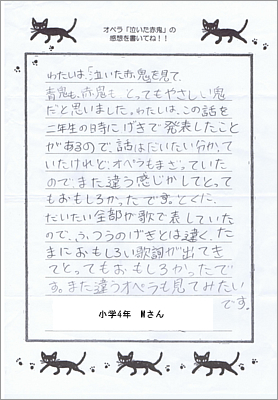 オペラ「泣いた赤鬼」の
感想を書いてね!!
わたしは、「泣いた赤鬼を見て、
青鬼も、赤鬼も とってもやさしい鬼
だと思いました。わたしは、この話を
二年生の日時にげきで発表したこと
があるので、話はだいたい分かって
いたけれど、オペラもまざっていた
ので、また違う感じがしてとって
もおもしろかったです。とくに、
だいたい全部が歌で表していた
ので、ふつうのげきとは違く、た
まにおもしろい歌詞が出てき
てとってもおもしろかったで
す。また違うオペラも見てみたい
です。
小学4年 Mさん